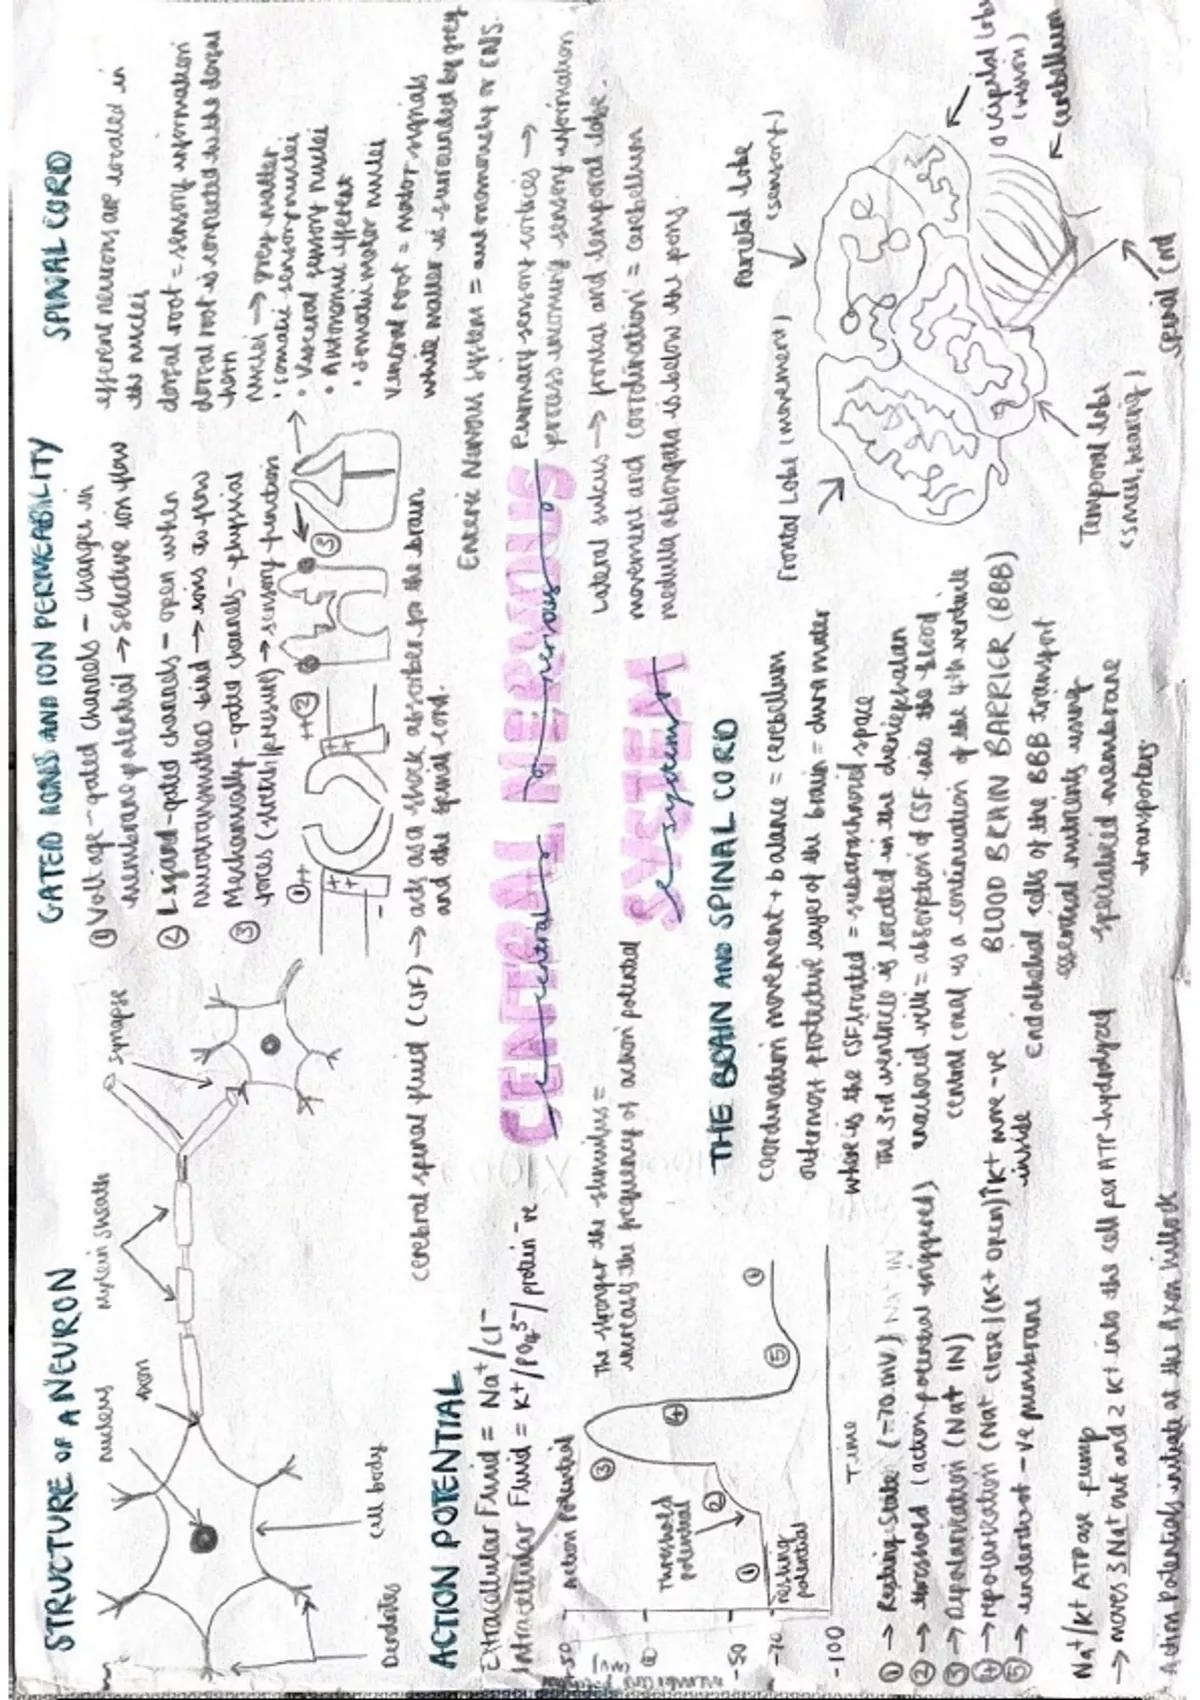 STRUCTURE OF A NEURON
nucleus
Axon
Mylein sheath
synapse
Dendrites
cell body
GATED AND ION PERMEABILITY
① Voltage-gated channels - changes in
membrane potential → selective ion flow
② Ligand-gated channels - open when
neurotransmitters bind → ions flow
③ Mechanically-gated channels - physical
(pressure) → sensory function
①
++
++
++
-
++②
③
SPINAL CORD
efferent neurons are located in
the nuclei
dorsal root = sensory information
dorsal root is connected to the dorsal
horn
nuclei → grey matter
• somatic sensory nuclei
• visceral sensory nuclei
• Autonomic efferent
• somatic motor nuclei
ventral root = motor signals
white matter is surrounded by grey
cerebral spinal fluid (CSF) → acts as a shock absorber for the brain
and the spinal cord.
Enteric Nervous System = autonomously or CNS.
ACTION POTENTIAL
Extracellular Fluid = Na+/Cl-
Intracellular Fluid = K+/PO4 3-/protein -ve
Action Potential
+50
0
-50
-70
-100
Threshold
potential
resting
potential
①
②
③
④
⑤
⑥
Time
The stronger the stimulus =
increases the frequency of action potential
① → Resting State (-70mV)
② → threshold (action potential triggered)
③ → Depolarisation (Na+ IN)
④ → repolarisation (Na+ close)(K+ open)↑K+ more -ve
inside
⑤ → undershoot -ve membrane
Na+/K+ ATPase pump
→ moves 3 Na+ out and 2 K+ into the cell per ATP hydrolyzed
Action Potentials initiate at the Axon hillock
CENTRAL NERVOUS
central nervous
SYSTEM
system
Primary sensory cortices →
process incoming sensory information
Lateral sulcus → frontal and temporal lobe.
movement and coordination = cerebellum
medulla ablongata is below the pons.
THE BRAIN AND SPINAL CORD
coordination movement + balance = cerebellum
outermost protective layer of the brain = dura mater
where is the CSF located = subarachnoid space
The 3rd ventricle is located in the diencephalan
arachnoid villi = absorption of CSF into the blood.
central canal is a continuation of the 4th ventricle
BLOOD BRAIN BARRIER (BBB)
Endothelial cells of the BBB transport
essential nutrients using
specialised membrane
transporters
Frontal Lobe (movement)
Parietal lobe
(sensory)
occipital lobe
(vision)
cerebellum
Spinal Cord
Temporal lobe
(smell, hearing)